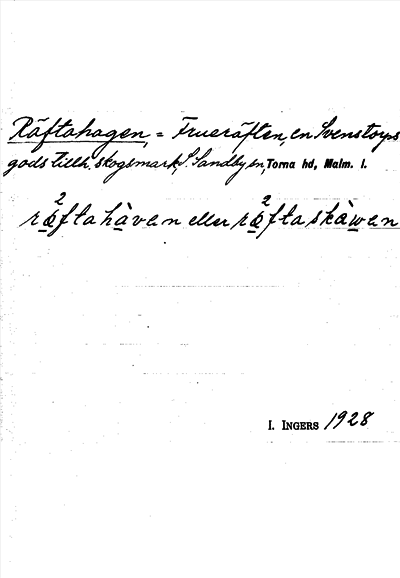 Räftahagen, = Frueräften, en Svenstorps
gods tillh. skogsmark, S. Sandby sn, Torna hd, Malm. l.
ræ²ftahàvan eller ræ²ftaskàwan
I. INGERS 1928